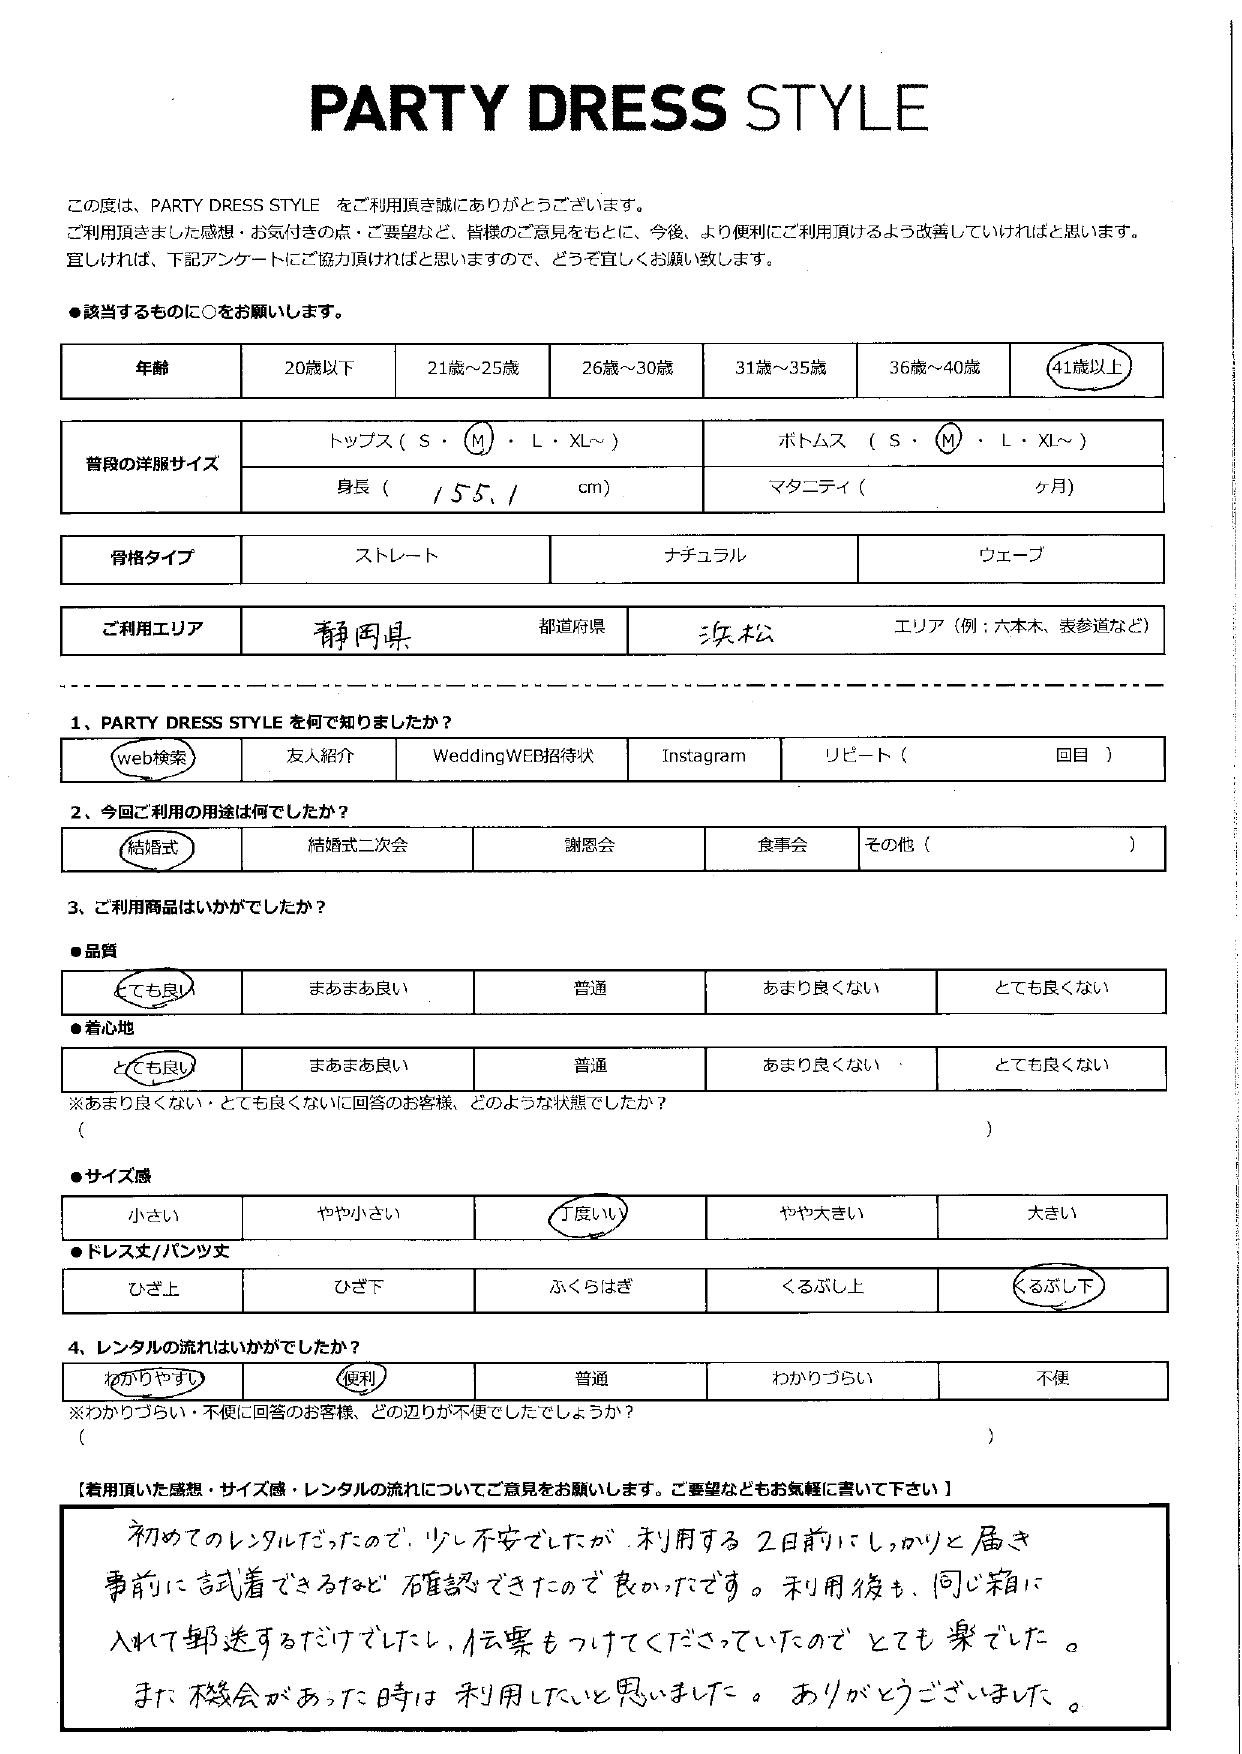 PARTY DRESS STYLE
この度は、PARTY DRESS STYLE をご利用頂き誠にありがとうございます。
ご利用頂きました感想・お気付きの点・ご要望など、皆様のご意見をもとに、今後、より便利にご利用頂けるよう改善していければと思います。
宜しければ、下記アンケートにご協力頂ければと思いますので、どうぞ宜しくお願い致します。
●該当するものに○をお願いします。
年齢 20歳以下 21歳～25歳 26歳～30歳 31歳～35歳 36歳～40歳 41歳以上
普段の洋服サイズ トップス ( S ・ M ・ L ・ XL～ ) ボトムス ( S ・ M ・ L ・ XL～ )
身長 ( 155.1 cm) マタニティ ( ヶ月)
骨格タイプ ストレート ナチュラル ウェーブ
ご利用エリア 静岡県 都道府県 浜松 エリア（例；六本木、表参道など）
1、PARTY DRESS STYLE を何で知りましたか？
web検索 友人紹介 WeddingWEB招待状 Instagram リピート ( 回目 )
2、今回ご利用の用途は何でしたか？
結婚式 結婚式二次会 謝恩会 食事会 その他 ( )
3、ご利用商品はいかがでしたか？
●品質
とても良い まあまあ良い 普通 あまり良くない とても良くない
●着心地
とても良い まあまあ良い 普通 あまり良くない とても良くない
※あまり良くない・とても良くないに回答のお客様、どのような状態でしたか？
( )
●サイズ感
小さい やや小さい 丁度いい やや大きい 大きい
●ドレス丈/パンツ丈
ひざ上 ひざ下 ふくらはぎ くるぶし上 くるぶし下
4、レンタルの流れはいかがでしたか？
わかりやすい 便利 普通 わかりづらい 不便
※わかりづらい・不便に回答のお客様、どの辺りが不便でしたでしょうか？
( )
【着用頂いた感想・サイズ感・レンタルの流れについてご意見をお願いします。ご要望などもお気軽に書いて下さい 】
初めてのレンタルだったので、少し不安でしたが、利用する2日前にしっかりと届き
事前に試着できるなど 確認できたので良かったです。利用後も、同じ箱に
入れて郵送するだけでしたし、伝票もつけてくださっていたので とても楽でした。
また機会があった時は 利用したいと思いました。ありがとうございました。